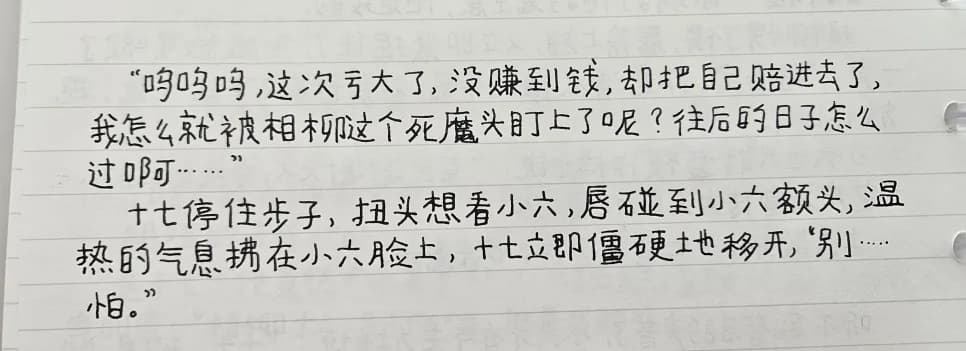 “呜呜呜,这次亏大了,没赚到钱,却把自己赔进去了,
我怎么就被相柳这个死魔头盯上了呢?往后的日子怎么
过啊……”
十七停住步子,扭头想看小六,唇碰到小六额头,温
热的气息拂在小六脸上,十七立即僵硬地移开,“别……
怕。”